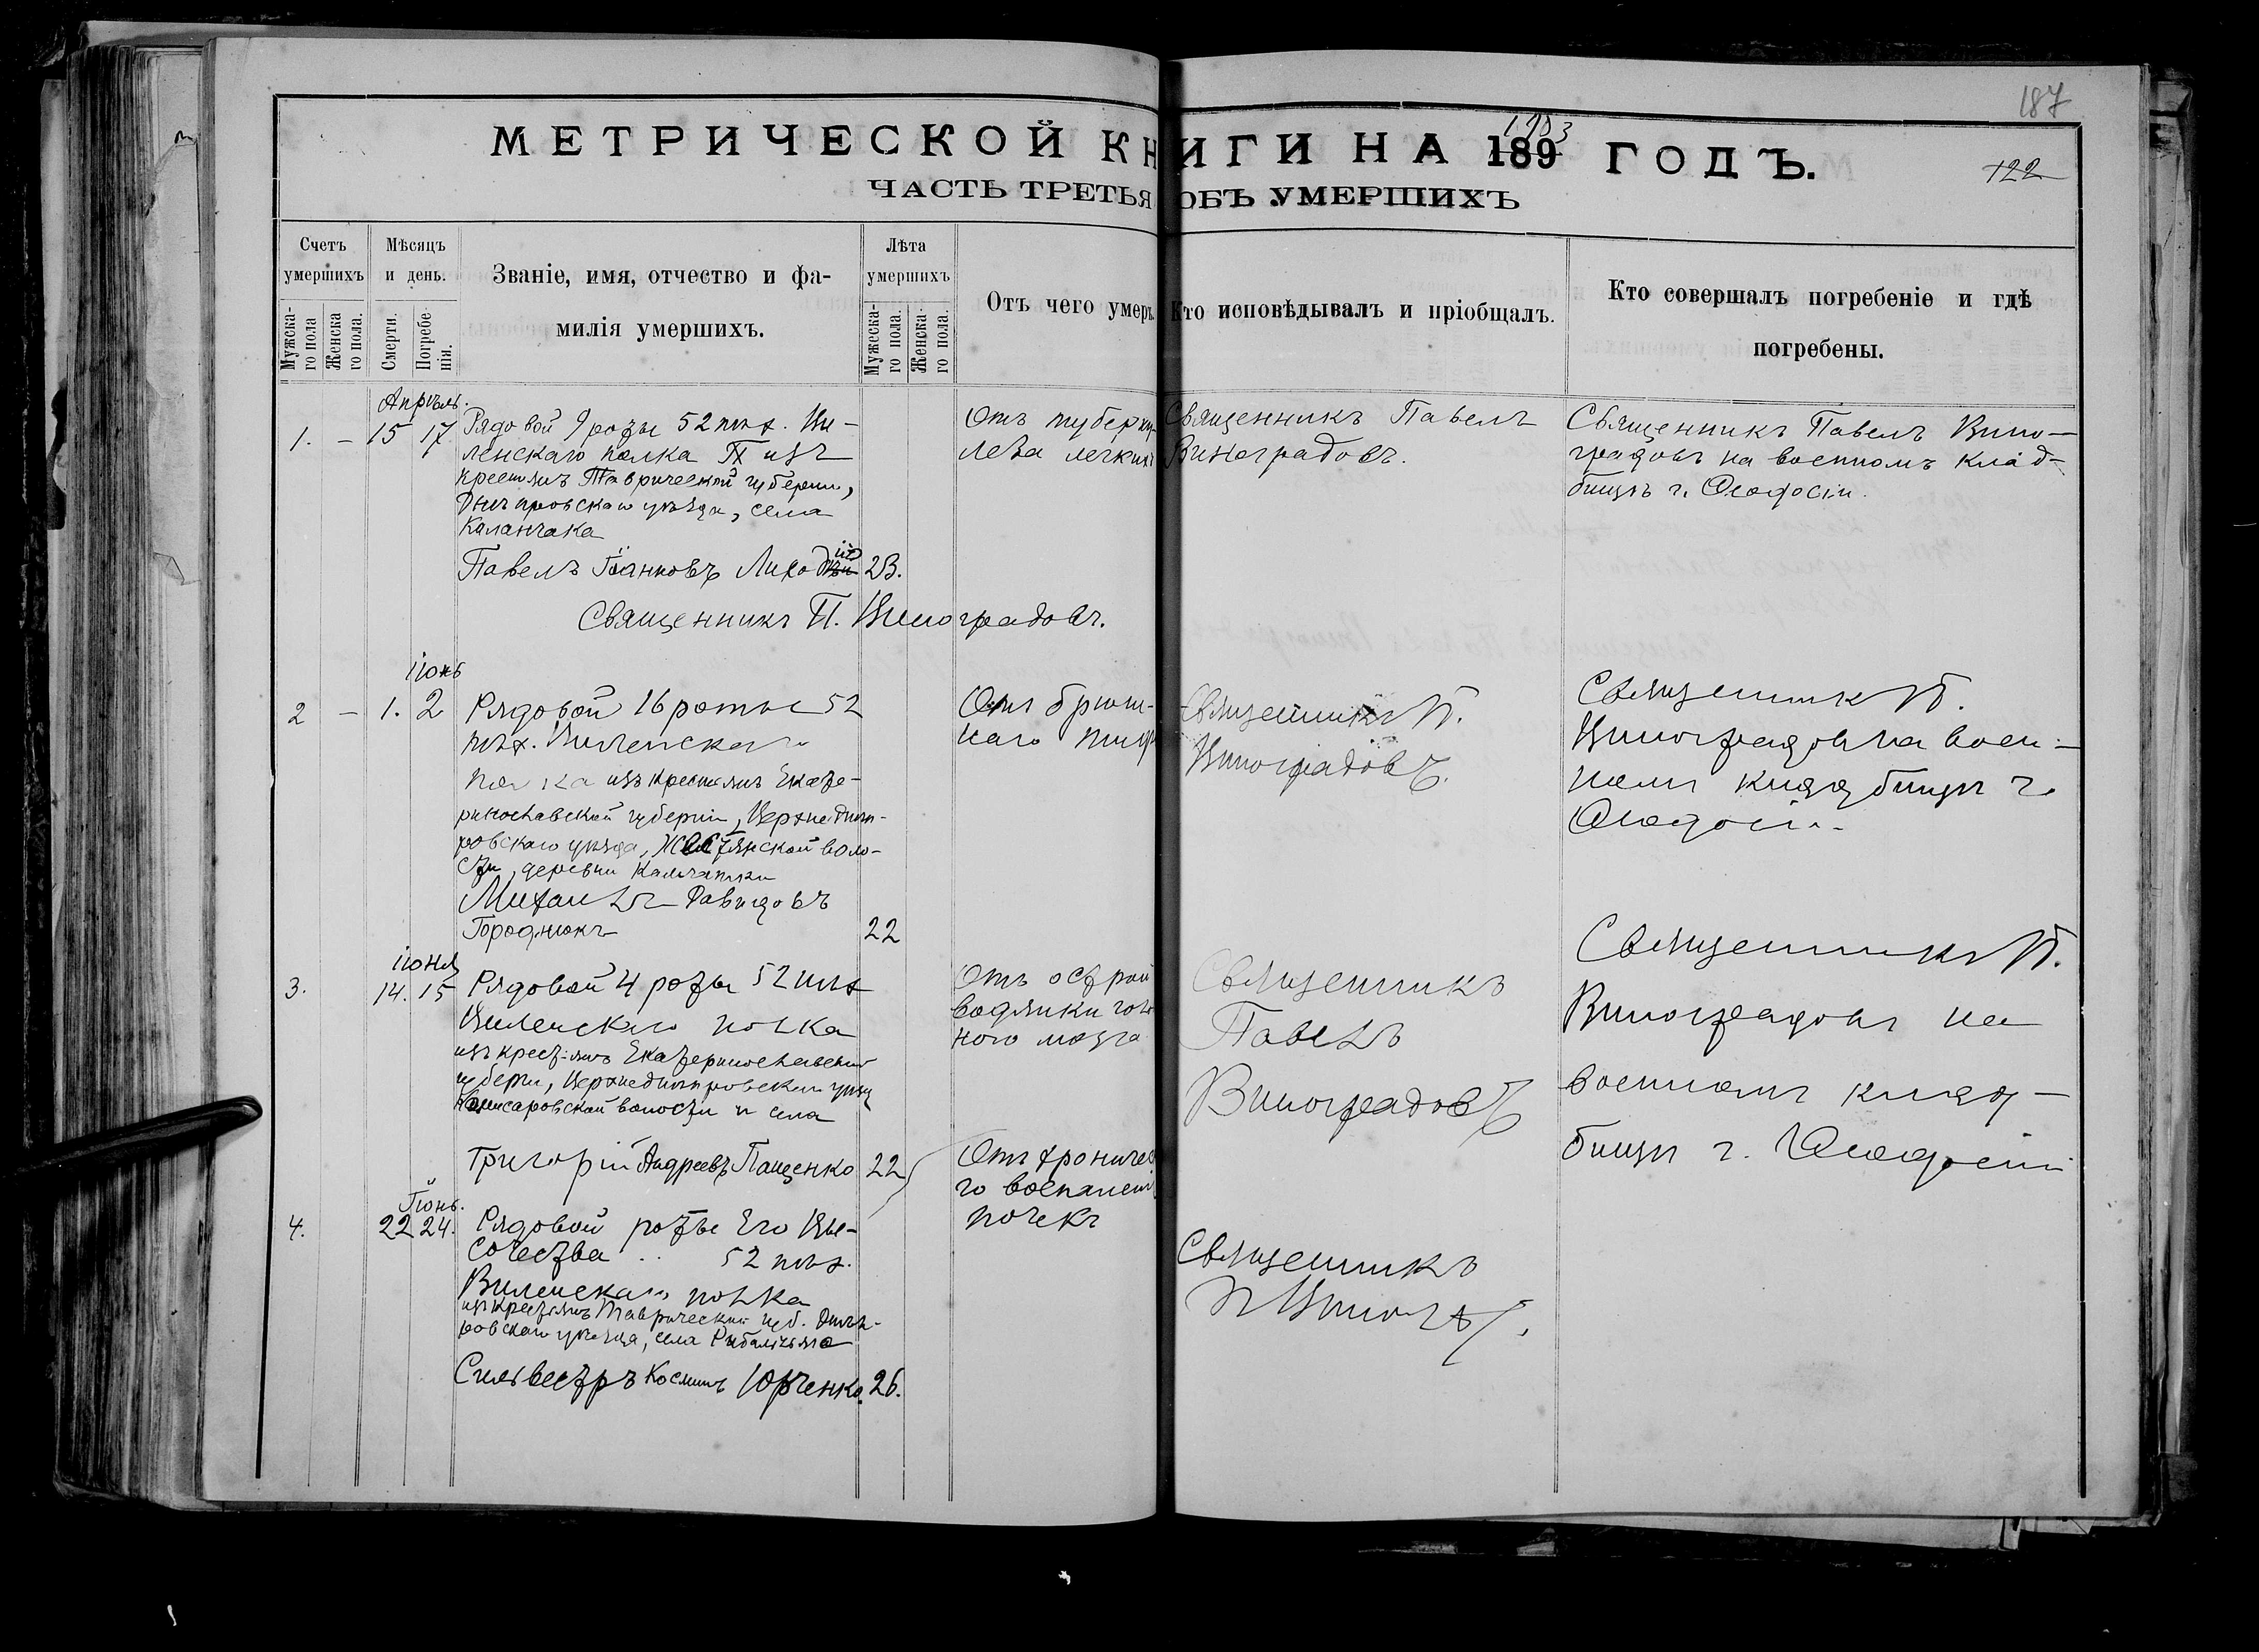 187
МЕТРИЧЕСКОЙ КНИГИ НА 189 ГОДЪ.
1903
122
ЧАСТЬ ТРЕТЬЯ ОБЪ УМЕРШИХЪ
Счетъ умершихъ
Мужска-го пола
Женска го пола.
Мѣсяцъ и день.
Смерти.
Погребе-нія.
Званіе, имя, отчество и фа-
милія умершихъ.
Лѣта умершихъ
Мужеска-го пола.
Женска-го пола.
Отъ чего умеръ.
Кто исповѣдывалъ и пріобщалъ.
Кто совершалъ погребеніе и гдѣ
погребены.
Апрѣль.
1. – 15 17
Рядовой 9 роты 52 пѣх. Ви-
ленскаго полка изъ
крестьянъ Таврической губерніи,
Днѣпровскаго уѣзда, села
Каланчака
Павелъ 23.
Отъ туберку-
леза легкихъ
Священникъ Павелъ
Виноградовъ.
Священникъ Павелъ Вино-
градовъ на военномъ клад-
бищѣ г. Ѳеодосіи.
Священникъ П. Виноградовъ.
іюнь
2 – 1. 2
Рядовой 16 роты 52
пѣх. Виленскаго
полка изъ крестьянъ Екате-
ринославской губерніи, Верхнеднѣп-
ровскаго уѣзда, воло-
сти, деревни Камчатки
Михаилъ Давидовъ
Городнюкъ 22
Отъ брюш-
наго тифа
Священникъ П.
Виноградовъ.
Священникъ П.
Виноградовъ на воен-
номъ кладбищѣ г.
Ѳеодосіи
іюня
3. 14. 15
Рядовой 4 роты 52 пѣх
Виленскаго полка
изъ крестьянъ Екатеринославской
губерніи, Верхнеднѣпровскаго уѣзда
Комисаровской волости и села
Григорій Андреевъ Пащенко 22
Отъ острой
водянки голов
ного мозга
Священникъ
Павелъ
Виноградовъ
Священникъ П.
Виноградовъ на
военномъ клад-
бищѣ г. Ѳеодосіи
Іюнь.
4. 22 24.
Рядовой роты Его Вы-
сочества 52 пѣх.
Виленскаго полка
изъ крестьянъ Таврической губ. Днѣп-
ровскаго уѣзда, села
Сильвестръ Косминъ Юрченко. 26.
Отъ хроническа
го воспаленія
почекъ
Священникъ